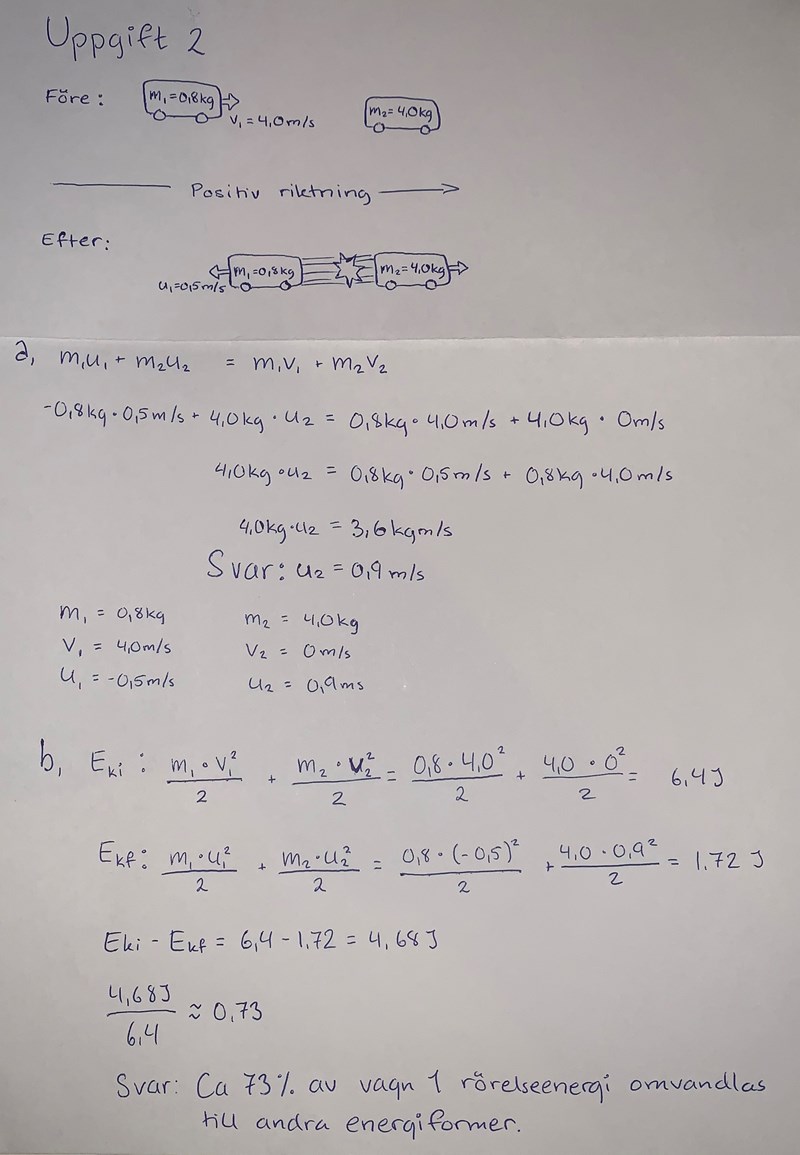 Uppgift 2
Före: m₁=0,8kg v₁=4,0m/s m₂=4,0kg
Positiv riktning
Efter:
u₁=0,5m/s m₁=0,8kg m₂=4,0kg
a, m₁u₁ + m₂u₂ = m₁v₁ + m₂v₂
-0,8kg·0,5m/s + 4,0kg·u₂ = 0,8kg·4,0m/s + 4,0kg · 0m/s
4,0kg·u₂ = 0,8kg·0,5m/s + 0,8kg·4,0m/s
4,0kg·u₂ = 3,6kgm/s
Svar: u₂ = 0,9m/s
m₁ = 0,8kg m₂ = 4,0kg
v₁ = 4,0m/s v₂ = 0m/s
u₁ = -0,5m/s u₂ = 0,9ms
b, Eki: m₁·v₁²/2 + m₂·v₂²/2 = 0,8·4,0²/2 + 4,0·0²/2 = 6,4J
Ekf: m₁·u₁²/2 + m₂·u₂²/2 = 0,8·(-0,5)²/2 + 4,0·0,9²/2 = 1,72 J
Eki - Ekf = 6,4-1,72 = 4,68J
4,68J/6,4 ≈ 0,73
Svar: Ca 73% av vagn 1 rörelseenergi omvandlas
till andra energiformer.